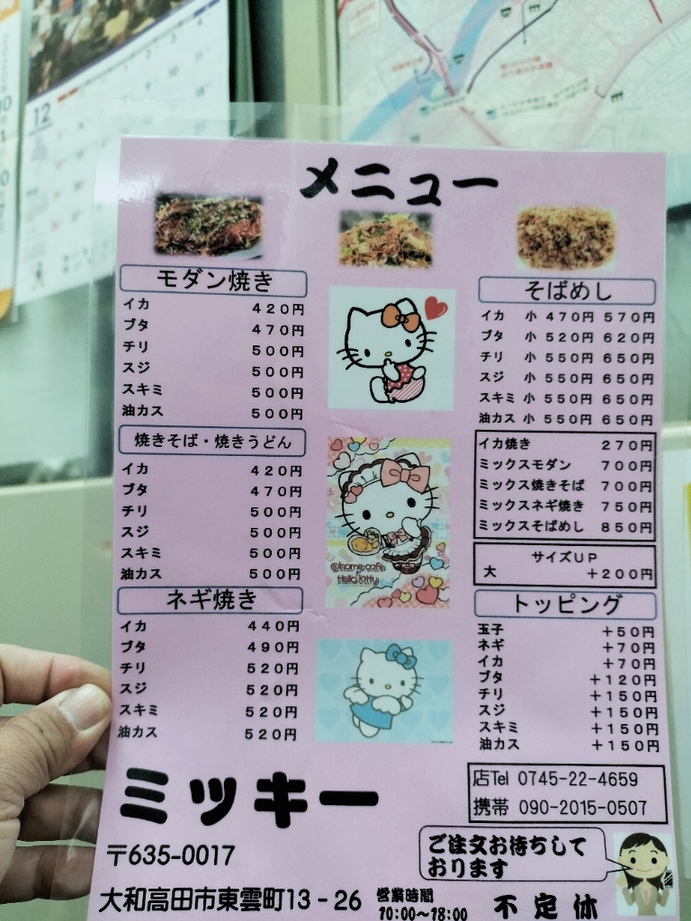 12
メニュー
モダン焼き
イカ 420円
ブタ 470円
チリ 500円
スジ 500円
スキミ 500円
油カス 500円
焼きそば・焼きうどん
イカ 420円
ブタ 470円
チリ 500円
スジ 500円
スキミ 500円
油カス 500円
ネギ焼き
イカ 440円
ブタ 490円
チリ 520円
スジ 520円
スキミ 520円
油カス 520円
@home cafe
×
Hello Kitty
そばめし
イカ 小 470円 570円
ブタ 小 520円 620円
チリ 小 550円 650円
スジ 小 550円 650円
スキミ 小 550円 650円
油カス 小 550円 650円
イカ焼き 270円
ミックスモダン 700円
ミックス焼きそば 700円
ミックスネギ焼き 750円
ミックスそばめし 850円
サイズUP
大 +200円
トッピング
玉子 +50円
ネギ +70円
イカ +70円
ブタ +120円
チリ +150円
スジ +150円
スキミ +150円
油カス +150円
ミッキー
〒635-0017
大和高田市東雲町13-26
営業時間
10:00~18:00
不定休
店Tel 0745-22-4659
携帯 090-2015-0507
ご注文お待ちして
おります